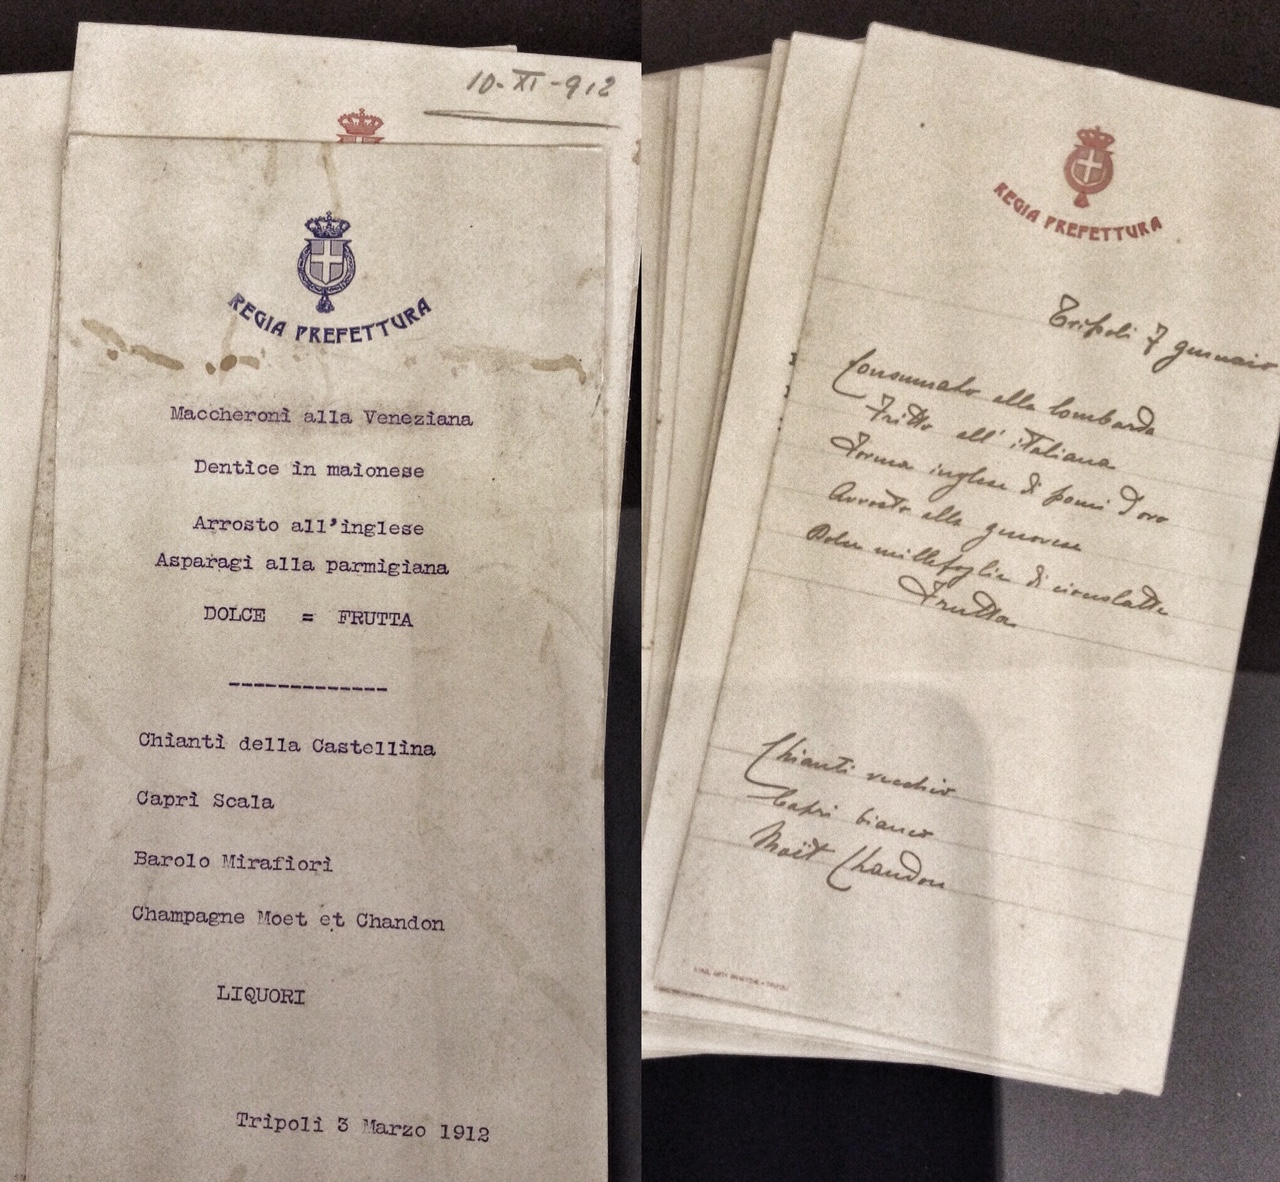 10-XI-912
REGIA PREFETTURA
Maccheroni alla Veneziana
Dentice in maionese
Arrosto all'inglese
Asparagi alla parmigiana
DOLCE = FRUTTA
-------------
Chianti della Castellina
Capri Scala
Barolo Mirafiori
Champagne Moet et Chandon
LIQUORI
Tripoli 3 Marzo 1912
REGIA PREFETTURA
Tripoli 7 gennaio
Consumato alla lombarda
Fritto all'italiana
Forma inglese di pomi d'oro
Arrosto alla genovese
Dolce millefoglie di cioccolatte
Frutta
Chianti vecchio
Capri bianco
Moët Chandon